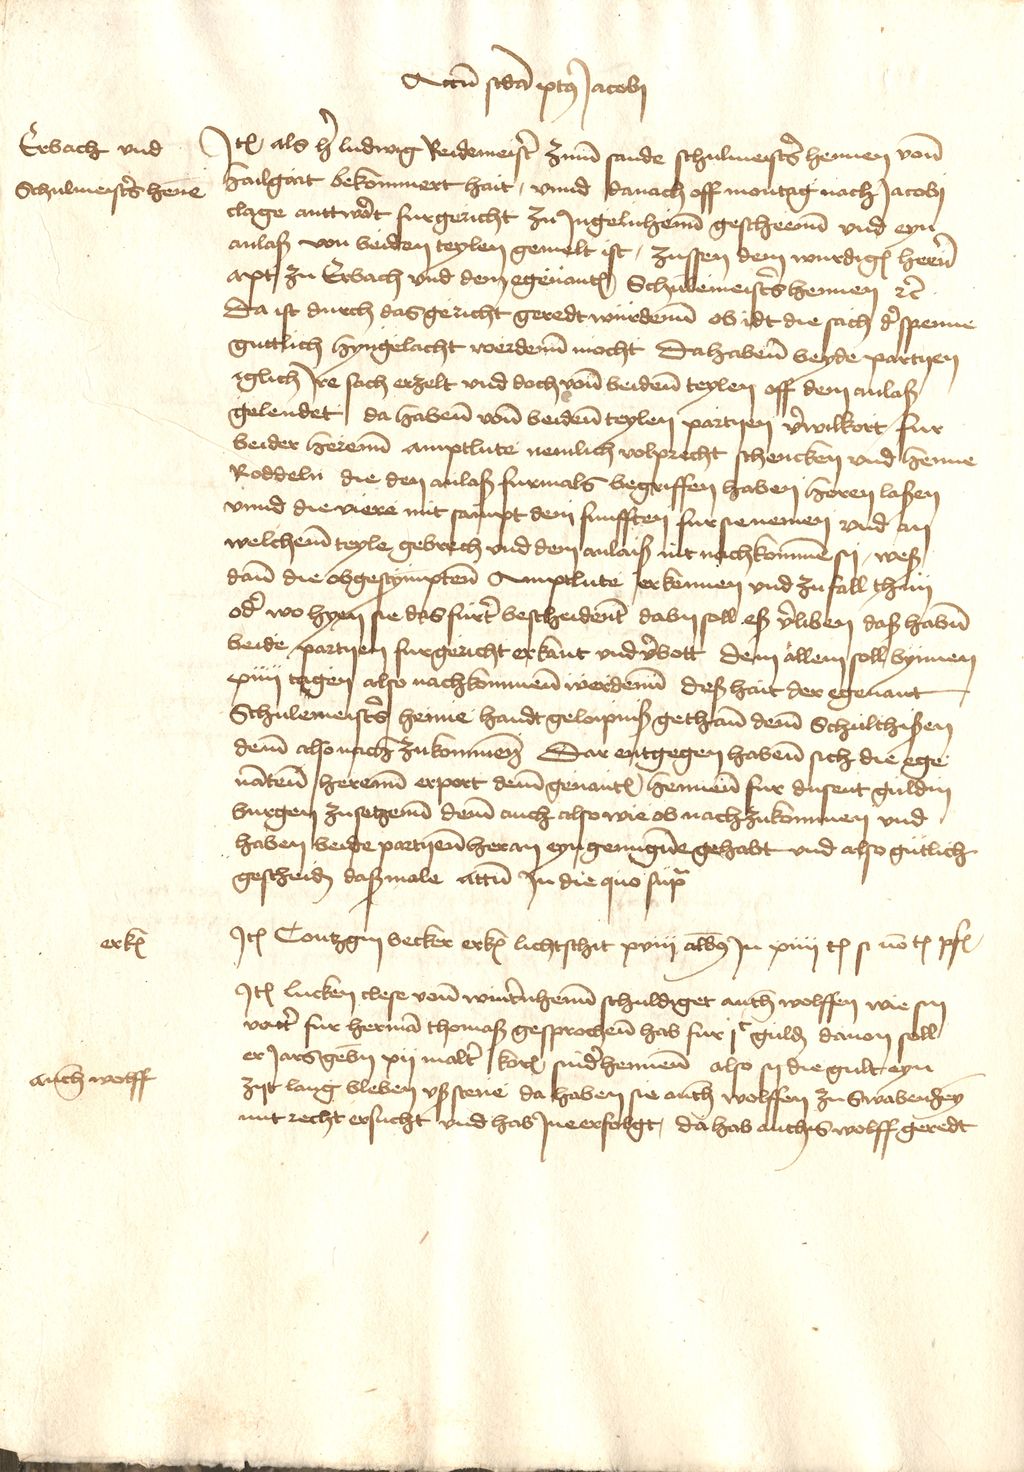 Actu(m) s(e)c(un)da p(os)t Jacobi
Erbach und
Schulmeist(er)s Henne
It(em) als h(er) Ludwig Reidemeist(er) zum sande Schulmeist(er)s Hennen von
Hailgart bekommert hait, vnnd danach off montag nach Jacobi
clage anttwo(r)t fur gericht zu Jngelnhem(m) gescheem(m) vnd eyn
anlaß von beiden teylen gemelt ist, zussen dem wurdig(en) hern
apt zu Erbach vnd dem egenant(en) Schulemeist(er)s Hennen etc
Da ist durch das gericht geredt wurdenn ob jdt die sach d(er) spenne
gutlich hyngelacht werdenn mocht Da haben beyde partyen
iglich Jre sach erzelt vnd doch von beiden teylen off dem anlaß
gelendet da haben von beiden teylen partyen v(er)wilkort fur
beider herenn amptlute nemlich volprecht schencken vnd Henne
Roddeln die den anlaß furmals begriffen haben horen laßen
vnnd die viere mit sampt dem funfften fur sie nemen vnd an
welchem teyle gebrech vnd dem anlaiß nit nachkommen sy, weß
dan die obgestympten Amptlute erkennen vnd zufall thun
od(er) wo hyen sie das furt(er) bescheident dabij soll eß v(er)liben daß haben
beide partyen fur gericht erkant vnd v(er)bott dem allem soll bynnen
xiiii tagen also nachkommen werdenn deß hait der egenant
Schulemeist(er)s Henne handt gelopniß gethan dem Schulthißen
dem also nach zukommen Dar entgegen haben sich die ege
nante(n) herenn erport dem genant(en) Hennen fur dusent guldin
burgen zusetzenn dem auch also wie ob nach zukommen vnd
haben beide partyen heran eyn genugu(n)e gehabt vnd also gutlich
gescheid(en) daßmale Actu(m) Jn die quo sup(ra)
erk(ennt)
It(em) Contzgin becker erk(ennt) lichtschit xviii alb(us) Jn xiiii t(agen) s(i) no(n) t(unc) pf(and)
It(em) Lucken clese von wint(er)nhem(m) schuldiget anth(is) wolffen wie syn
vatt(er) fur Herma(n) thomaß gesprochen hab fur ic guld(en) davon soll
er Jars geb(e)n xii malt(er) kor(n) sud(er) Hennen also sy die gult eyn
Anth(is) wolff
zijt lang bleben vß stene da haben sie anth(is) wolffen zu Swabenhey(m)
mit recht ersucht vnd hab Jne erfolgt, da hab anthis wolff geredt